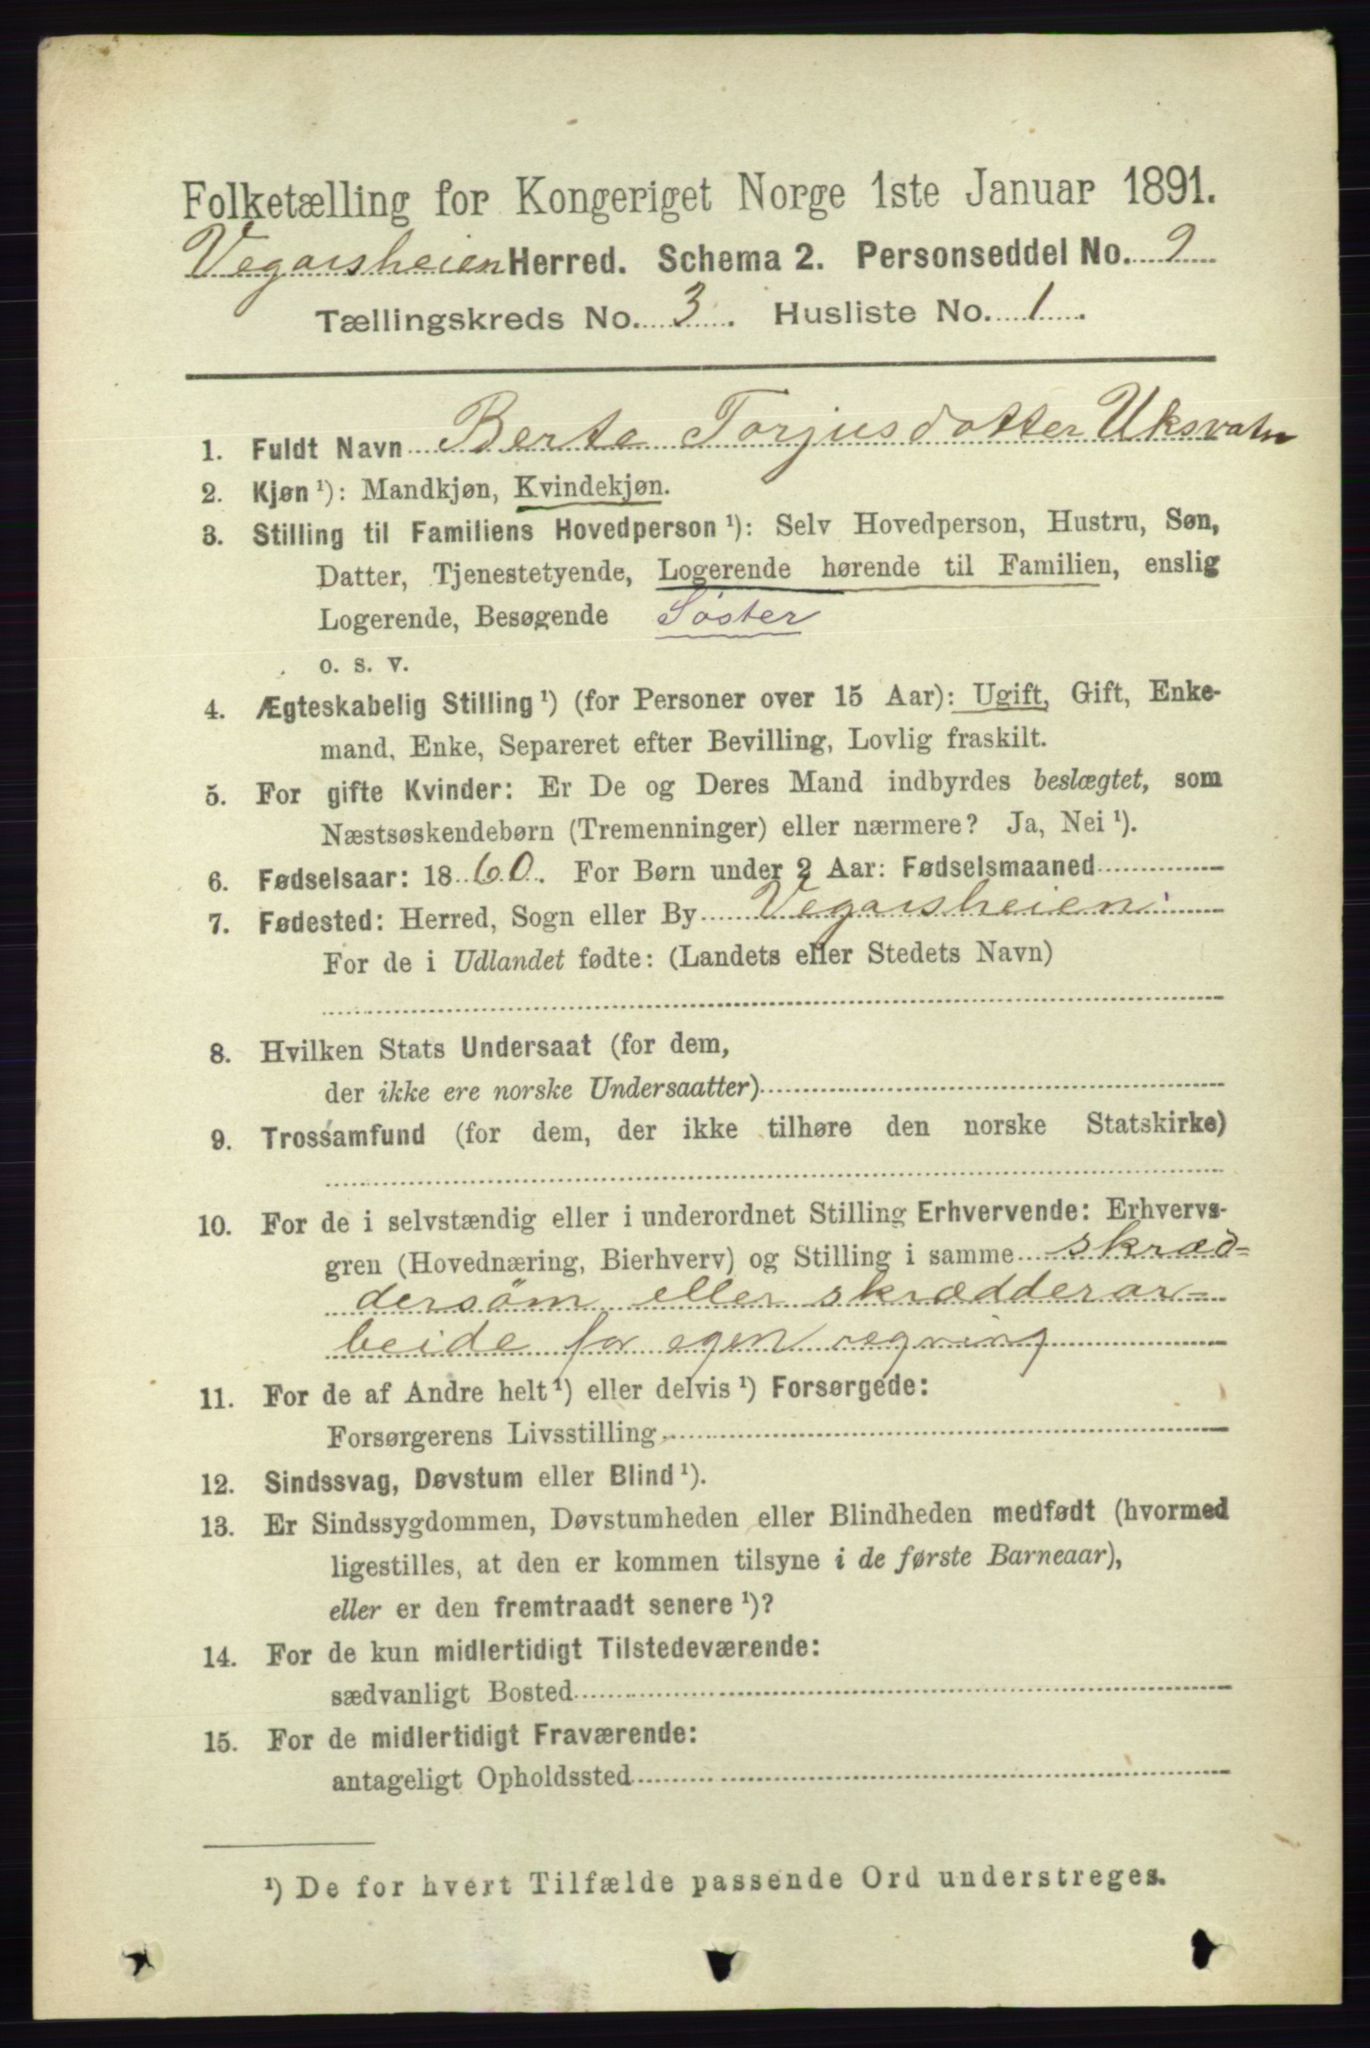 Folketælling for Kongeriget Norge 1ste Januar 1891.
Vegarsheien Herred. Schema 2. Personseddel No. 9
Tællingskreds No. 3. Husliste No. 1.
1. Fuldt Navn Berte Torjusdotter Uksvatn
2. Kjøn ¹): Mandkjøn, Kvindekjøn.
3. Stilling til Familiens Hovedperson ¹): Selv Hovedperson, Hustru, Søn,
Datter, Tjenestetyende, Logerende hørende til Familien, enslig
Logerende, Besøgende Söster
o. s. v.
4. Ægteskabelig Stilling ¹) (for Personer over 15 Aar): Ugift, Gift, Enke-
mand, Enke, Separeret efter Bevilling, Lovlig fraskilt.
5. For gifte Kvinder: Er De og Deres Mand indbyrdes beslægtet, som
Næstsøskendebørn (Tremenninger) eller nærmere? Ja, Nei ¹).
6. Fødselsaar: 1860. For Børn under 2 Aar: Fødselsmaaned
7. Fødested: Herred, Sogn eller By Vegarsheien
For de i Udlandet fødte: (Landets eller Stedets Navn)
8. Hvilken Stats Undersaat (for dem,
der ikke ere norske Undersaatter)
9. Trossamfund (for dem, der ikke tilhøre den norske Statskirke)
10. For de i selvstændig eller i underordnet Stilling Erhvervende: Erhvervs-
gren (Hovednæring, Bierhverv) og Stilling i samme skræd-
dersöm eller skrædderar-
beide for egen regning
11. For de af Andre helt ¹) eller delvis ¹) Forsørgede:
Forsørgerens Livsstilling
12. Sindssvag, Døvstum eller Blind ¹).
13. Er Sindssygdommen, Døvstumheden eller Blindheden medfødt (hvormed
ligestilles, at den er kommen tilsyne i de første Barneaar),
eller er den fremtraadt senere ¹)?
14. For de kun midlertidigt Tilstedeværende:
sædvanligt Bosted
15. For de midlertidigt Fraværende:
antageligt Opholdssted
¹) De for hvert Tilfælde passende Ord understreges.